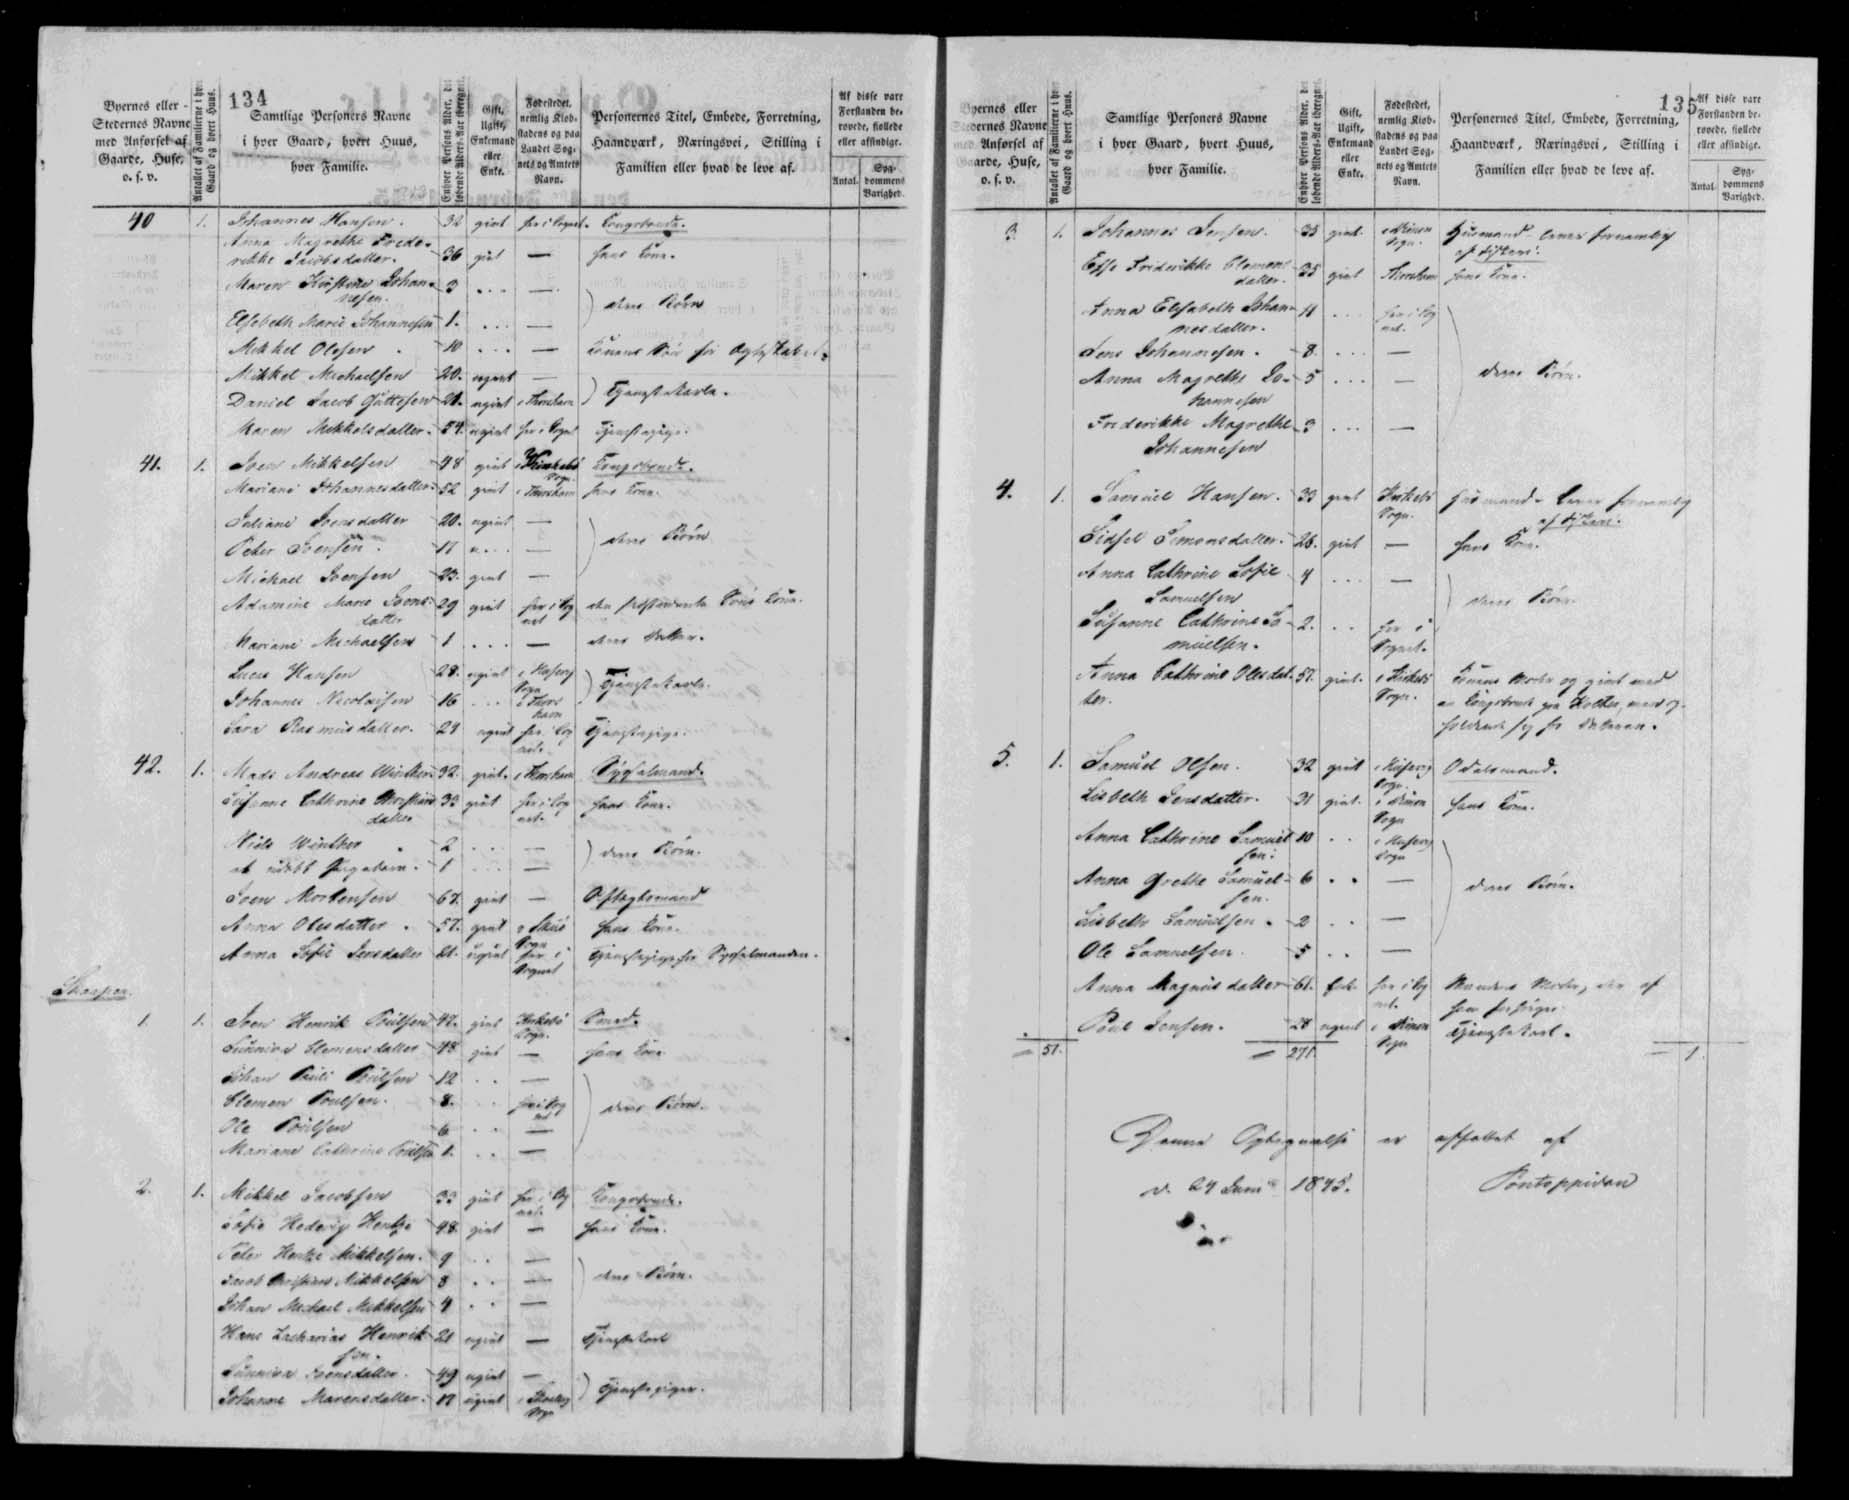 134
Byernes eller
Stedernes Navne
med Anførsel af
Gaarde, Huse,
o. s. v.
Antallet af Familierne i hver
Gaard og hvert Huus.
Samtlige Personers Navne
i hver Gaard, hvert Huus,
hver Familie.
Enhver Persons Alder, det
løbende Alders-Aar iberegnet.
Gift,
Ugift,
Enkemand
eller
Enke.
Fødestedet,
nemlig Kiøb-
stadens og paa
Landet Sog-
nets og Amtets
Navn.
Personernes Titel, Embede, Forretning,
Haandværk, Næringsvei, Stilling i
Familien eller hvad de leve af.
Af disse vare
Forstanden be-
røvede, fiollede
eller afsindige.
Antal.
Syg-
dommens
Varighed.
40 1. Johannes Hansen. 32 givt her i Sognet. Kongsbonde.
Anna Magrethe Frede-
rikke Jacobsdatter. 36 givt — hans Kone.
Maren Kirstine Johan-
nesen. 3 ... —
deres Børn
Elsebeth Marie Johannesen 1. ... —
Mikkel Olesen 10 ... —
Mikkel Michaelsen 20. ugivt —
Tjenestekarle.
Daniel Jacob Guttesen 21. ugivt i Thorshavn
Maren Mikkelsdatter. 54. ugivt her i Sognet Tjenestepige.
41. 1. Joen Mikkelsen 48 givt Kongsbonde.
Sogn.
Mariane Johannesdatter. 52 givt i Thorshavn hans Kone.
Juliane Joensdatter 20. ugivt —
deres Børn
Peter Joensen. 17 u... —
Michael Joensen 23. givt —
Adamine Marie Joens-
datter 29 givt her i Sog
net Søns Kone.
Mariane Michaelsen 1 ... — deres Datter.
Lucas Hansen 28. ugivt
Sogn
Tjenestekarle.
Johannes Nicolaisen 16 ... i Thors
havn
Sara Rasmusdatter. 24 ugivt her i Sog
net. Tjenestepige.
42. 1. Mads Andreas Winther 32. givt. i Thorshavn Sysselmand.
Susanne Cathrine Christians
datter 33 givt her i Sog
net. hans Kone.
Niels Winther 2 ... —
deres Børn.
et udøbt Pigebarn. 1 ... —
Joen Mortensen 67. givt — Aftægtsmand
Anna Olesdatter. 57. givt
Sogn hans Kone.
Anna Sofie Jensdatter 21. ugivt her i
Sognet Tjenestepige hos Sysselmanden.
Skopen.
1. 1. Joen Henrik Poulsen 42. givt Kirkebø
Sogn. Smed.
Sunniva Clemensdatter 48 givt — hans Kone
Johan Pauli Poulsen 12 .. —
Clemen Poulsen. 8. .. her i Sog
net
deres Børn.
Ole Poulsen 6 .. —
Mariane Cathrine Poulsen 1. .. —
2. 1. Mikkel Jacobsen 33 givt her i Sog
net. Kongsbonde.
Sofie Hedevig Hentze 48. givt — hans Kone.
Peter Hentze Mikkelsen. 9 .. —
Jacob Christian Mikkelsen 8 .. —
deres Børn.
Johan Michael Mikkelsen 4 .. —
Hans Zacharias Henrik
sen. 21 ugivt — Tjenestekarl
Sunniva Joensdatter. 49 ugivt —
Tjenestepiger.
Johanne Marensdatter. 17 ugivt
Sogn
135
Byernes eller
Stedernes Navne
med Anførsel af
Gaarde, Huse,
o. s. v.
Antallet af Familierne i hver
Gaard og hvert Huus.
Samtlige Personers Navne
i hver Gaard, hvert Huus,
hver Familie.
Enhver Persons Alder, det
løbende Alders-Aar iberegnet.
Gift,
Ugift,
Enkemand
eller
Enke.
Fødestedet,
nemlig Kiøb-
stadens og paa
Landet Sog-
nets og Amtets
Navn.
Personernes Titel, Embede, Forretning,
Haandværk, Næringsvei, Stilling i
Familien eller hvad de leve af.
Af disse vare
Forstanden be-
røvede, fiollede
eller afsindige.
Antal
Syg-
dommens
Varighed.
3. 1. Johannes Jensen. 35 givt.
Sogn. Husmand lever fornemlig
af Fiskeri.
Frideriikke Clemens
datter. 35 givt Thorshavn hans Kone.
Anna Elisabeth Johan-
nesdatter. 11 ... her i Sog
net.
Jens Johannesen. 8. ... —
Anna Magrethe Jo-
hannesen 5 ... —
deres Børn.
Frederikke Magrethe
Johannesen 3 ... —
4. 1. Samuel Hansen. 33 givt Kirkebø
Sogn. Husmand. lever fornemlig
af Fiskeri.
Sidsel Simonsdatter. 26. givt — hans Kone.
Anna Cathrine Sofie
Samuelsen 4 ... —
deres Børn
Susanne Cathrine Sa-
muelsen. 2. .. her i
Sognet.
Anna Cathrine Olesdat-
ter. 57. givt. i Kirkebø
Sogn. Konens Moder og givt med
en Kongsbonde paa Kolter, men op-
holdende sig hos Datteren.
5. 1. Samuel Olsen. 32 givt
Sogn. Odelsmand.
Lisbeth Jensdatter. 31 givt.
Sogn hans Kone.
Anna Cathrine Samuel
sen. 10 ..
Sogn
Anna Grethe Samuel-
sen. 6 .. —
deres Børn.
Lisbeth Samuelsen. 2 .. —
Ole Samuelsen. 5 .. —
Anna Magnusdatter 61. Enke her i Sog
net. Mandens Moder, der af
ham forsørges
Poul Jensen. 28 ugivt
Sogn Tjenestekarl.
51. 271. 1.
Denne Optegnelse er affattet af
d. 24 Juni 1845. Pontoppidan